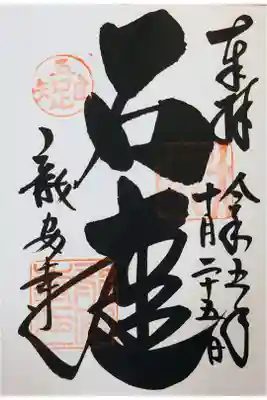 奉拝
令和五年
十月二十五日
石庭
龍安寺